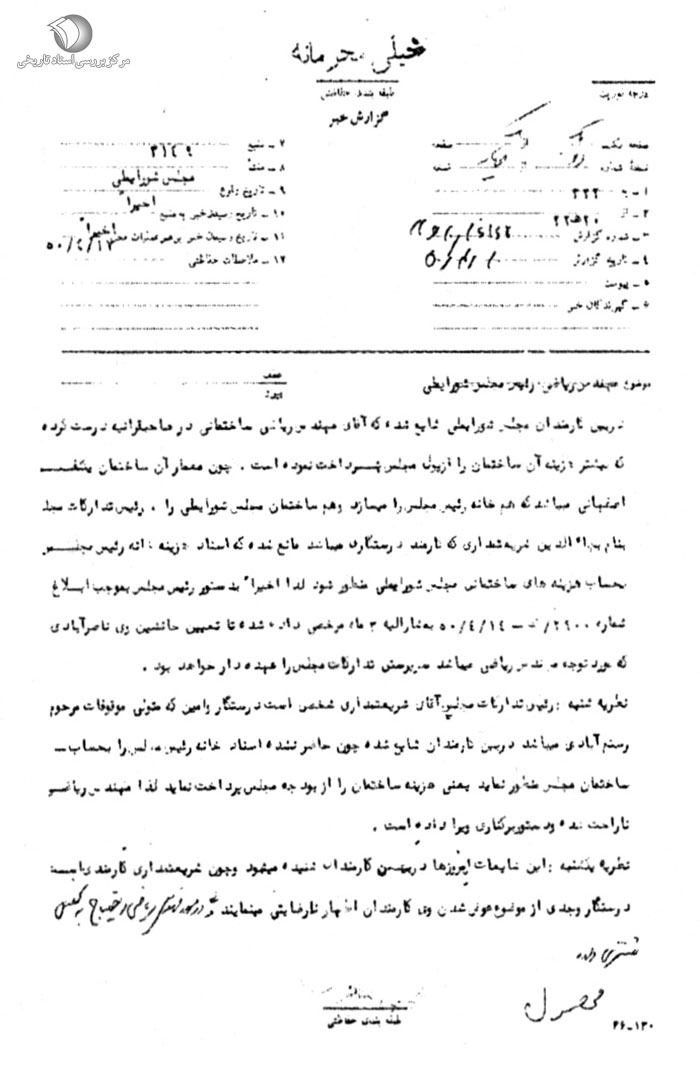 مرکز بررسی اسناد تاریخی
خیلی محرمانه
طبقه بندی حفاظتی
درجه فوریت
گزارش خبر
صفحه یک از صفحه
نسخهٔ شماره از نسخه
۱ - به ۳۲۲
۲ - از ۲۰ ه ۲۲
۳ - شماره گزارش
۴ - تاریخ گزارش
۵ - پیوست
۶ - گیرندگان خبر
۷ - منبع ۳۱۴۹
۸ - منشأ مجلس شورایملی
۹ - تاریخ وقوع اخیراً
۱۰ - تاریخ رسیدن خبر به منبع اخیراً
۱۱ - تاریخ رسیدن خبر برهبر عملیات ۵۰/۴/۱۷
۱۲ - ملاحظات حفاظتی
موضوع مهندس ریاضی رئیس مجلس شورایملی
عطف
پیرو
دربین کارمندان مجلس شورایملی شایع شده که آقای مهندس ریاضی ساختمانی در صاحبقرانیه درست کرده
که بیشتر هزینه آن ساختمان را از پول مجلس پرداخت نموده است . چون معمار آن ساختمان یکنفر
اصفهانی میباشد که هم خانه رئیس مجلس را میسازد وهم ساختمان مجلس شورایملی را . رئیس تدارکات مجلس
بنام بهاء الدین شریعتمداری که کارمند درستکاری میباشد مانع شده که اسناد هزینه خانه رئیس مجلس
بحساب هزینه های ساختمانی مجلس شورایملی منظور شود لذا اخیراً بدستور رئیس مجلس بموجب ابلاغ
شماره ۲۹۰۰/ - ۵۰/۴/۱۴ بمشارالیه ۳ ماه مرخصی داده شده تا تعیین جانشین وی ناصرآبادی
که مورد توجه مهندس ریاضی میباشد سرپرستی تدارکات مجلس را عهده دار خواهد بود .
نظریه شنبه : رئیس تدارکات مجلس آقای شریعتمداری شخصی است درستکار وامین که متولی موقوفات مرحوم
رستم آبادی میباشد دربین کارمندان شایع شده چون حاضر نشده اسناد خانه رئیس مجلس را بحساب -
ساختمان مجلس منظور نماید یعنی هزینه ساختمان را از بودجه مجلس پرداخت نماید لذا مهندس ریاضی
ناراحت شده ودستور برکناری ویرا داده است .
نظریه یکشنبه : این شایعات اینروزها دربین کارمندان شنیده میشود وچون شریعتمداری کارمندی است
درستکار وجدی از موضوع عوض شدن وی کارمندان اظهار نارضایتی مینمایند
طبقه بندی حفاظتی
۲۶-۱۳۰